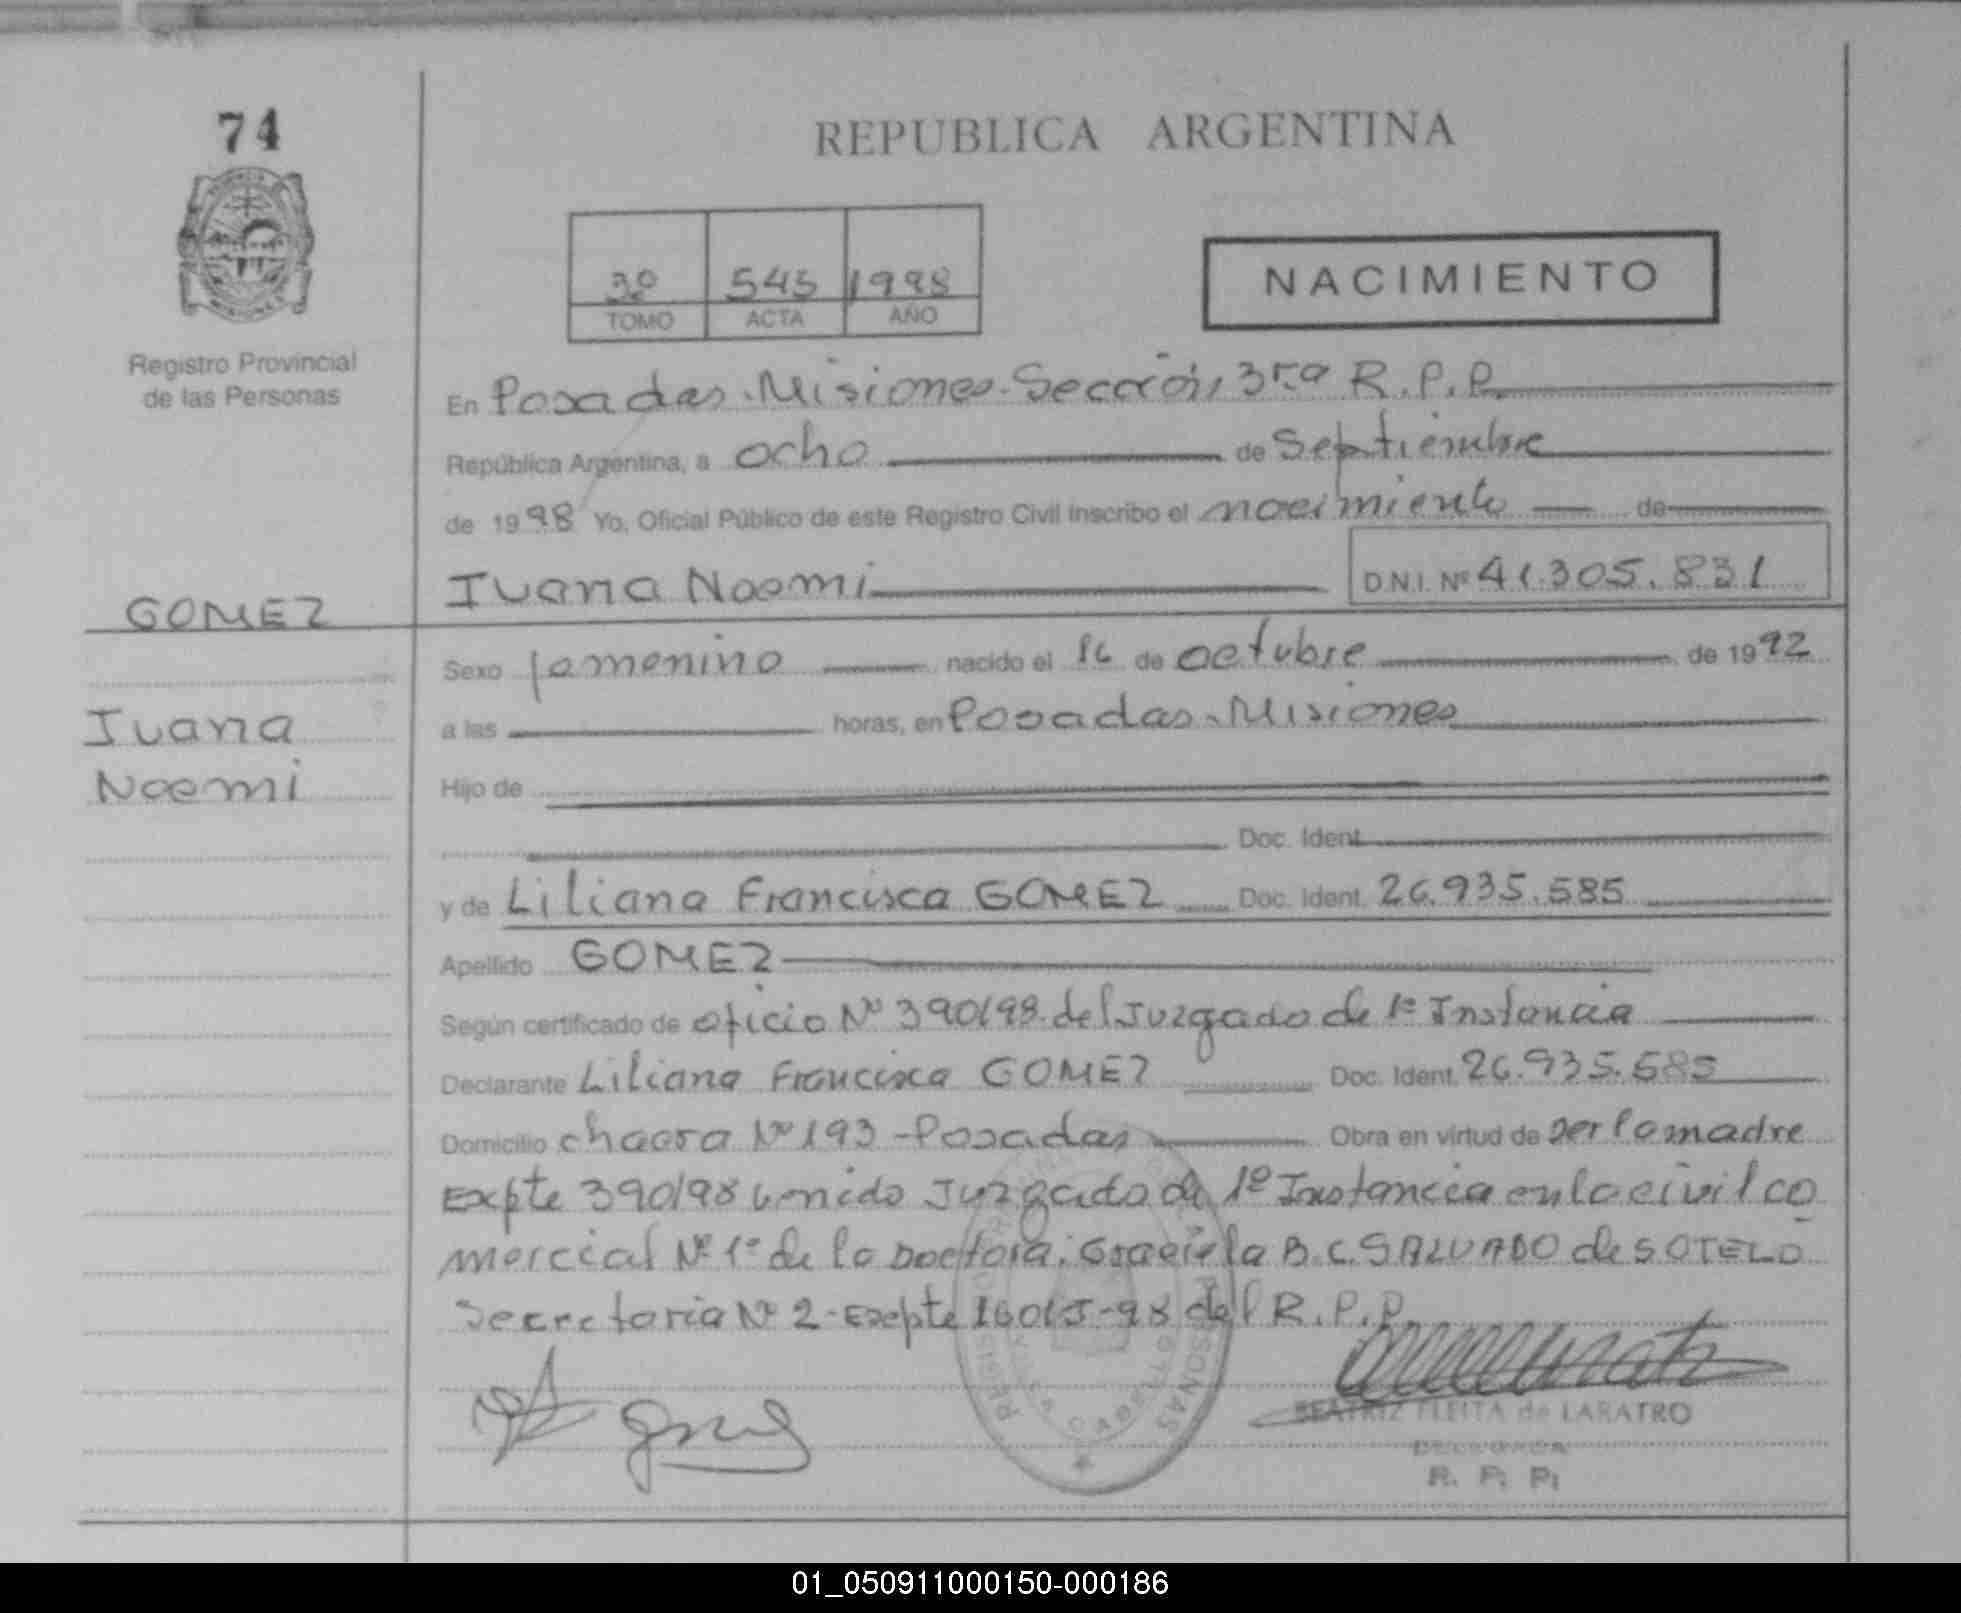 74
REPUBLICA ARGENTINA
3º 545 1998
TOMO ACTA AÑO
NACIMIENTO
Registro Provincial
de las Personas
En Posadas. Misiones. Sección 3ra R.P.P.
República Argentina, a ocho de Septiembre
de 1998 Yo, Oficial Público de este Registro Civil inscribo el nacimiento de
Ivana Noemi D.N.I. Nº 41.305.831
GOMEZ
Ivana
Noemi
Sexo femenino nacido el 16 de octubre de 1992
a las horas, en Posadas. Misiones
Hijo de
Doc. Ident.
y de Liliana Francisca GOMEZ Doc. Ident. 26.935.585
Apellido GOMEZ
Según certificado de oficio Nº 390/98. del Juzgado de 1º Instancia
Declarante Liliana Francisca GOMEZ Doc. Ident. 26.935.585
Domicilio chacra Nº 193 - Posadas Obra en virtud de ser la madre
Expte 390/98 venido Juzgado de 1º Instancia en lo civil co
mercial Nº 1º de la Doctora. Graciela B.C. SALVADO de SOTELO
Secretaria Nº 2 - Expte 1601 98 del R.P.P.
BEATRIZ FLEITA de LARATRO
DELEGADA
R. P. P.
01_050911000150-000186